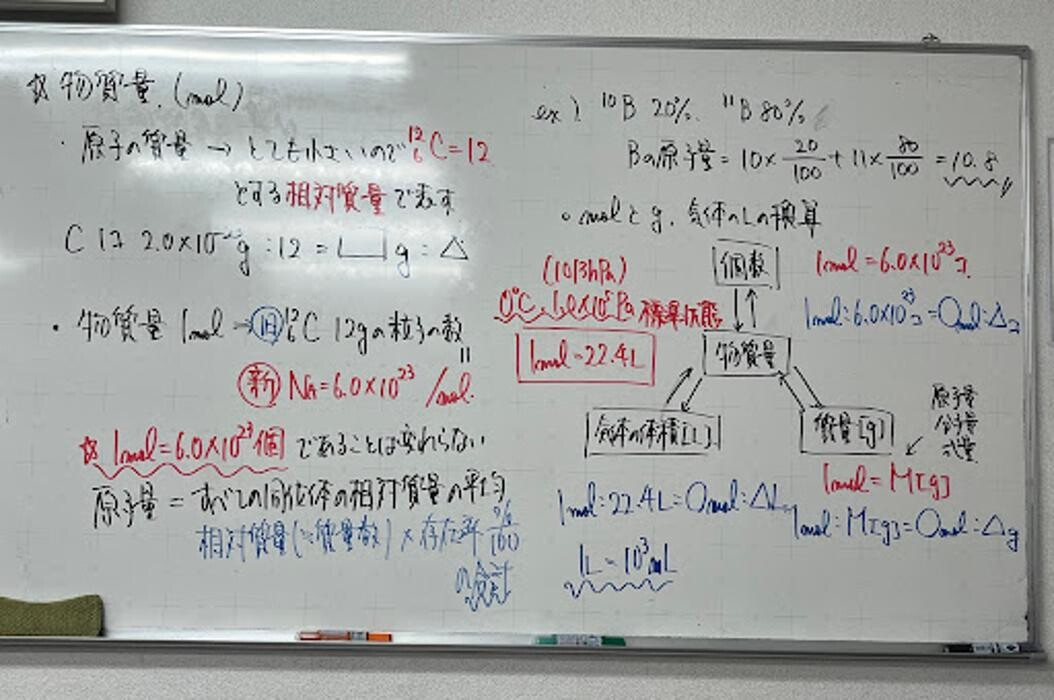 ☆ 物質量 (mol)
・原子の質量 → とても小さいので ¹²₆C=12
とする相対質量で表す
C 1コ 2.0×10⁻²³g : 12 = □ g : △
・物質量 1mol → 旧 ¹²₆C 12gの粒子の数
〃
新 NA=6.0×10²³ /mol
☆ 1mol=6.0×10²³個 であることは変わらない
原子量 = すべての同位体の相対質量の平均
相対質量(≒質量数) × 存在率 %/100
の合計
ex) ¹⁰B 20%. ¹¹B 80%
Bの原子量 = 10× 20/100 + 11× 80/100 = 10.8
○ molとg、気体のLの換算
(1013hPa)
0℃、1.0×10⁵Pa 標準状態
1mol=22.4L
個数
1mol=6.0×10²³コ
1mol:6.0×10²³コ=○mol:△コ
物質量
気体の体積[L]
質量[g]
原子量
分子量
式量
1mol=M[g]
1mol:22.4L=○mol:△L
1mol:M[g]=○mol:△g
1L=10³mL